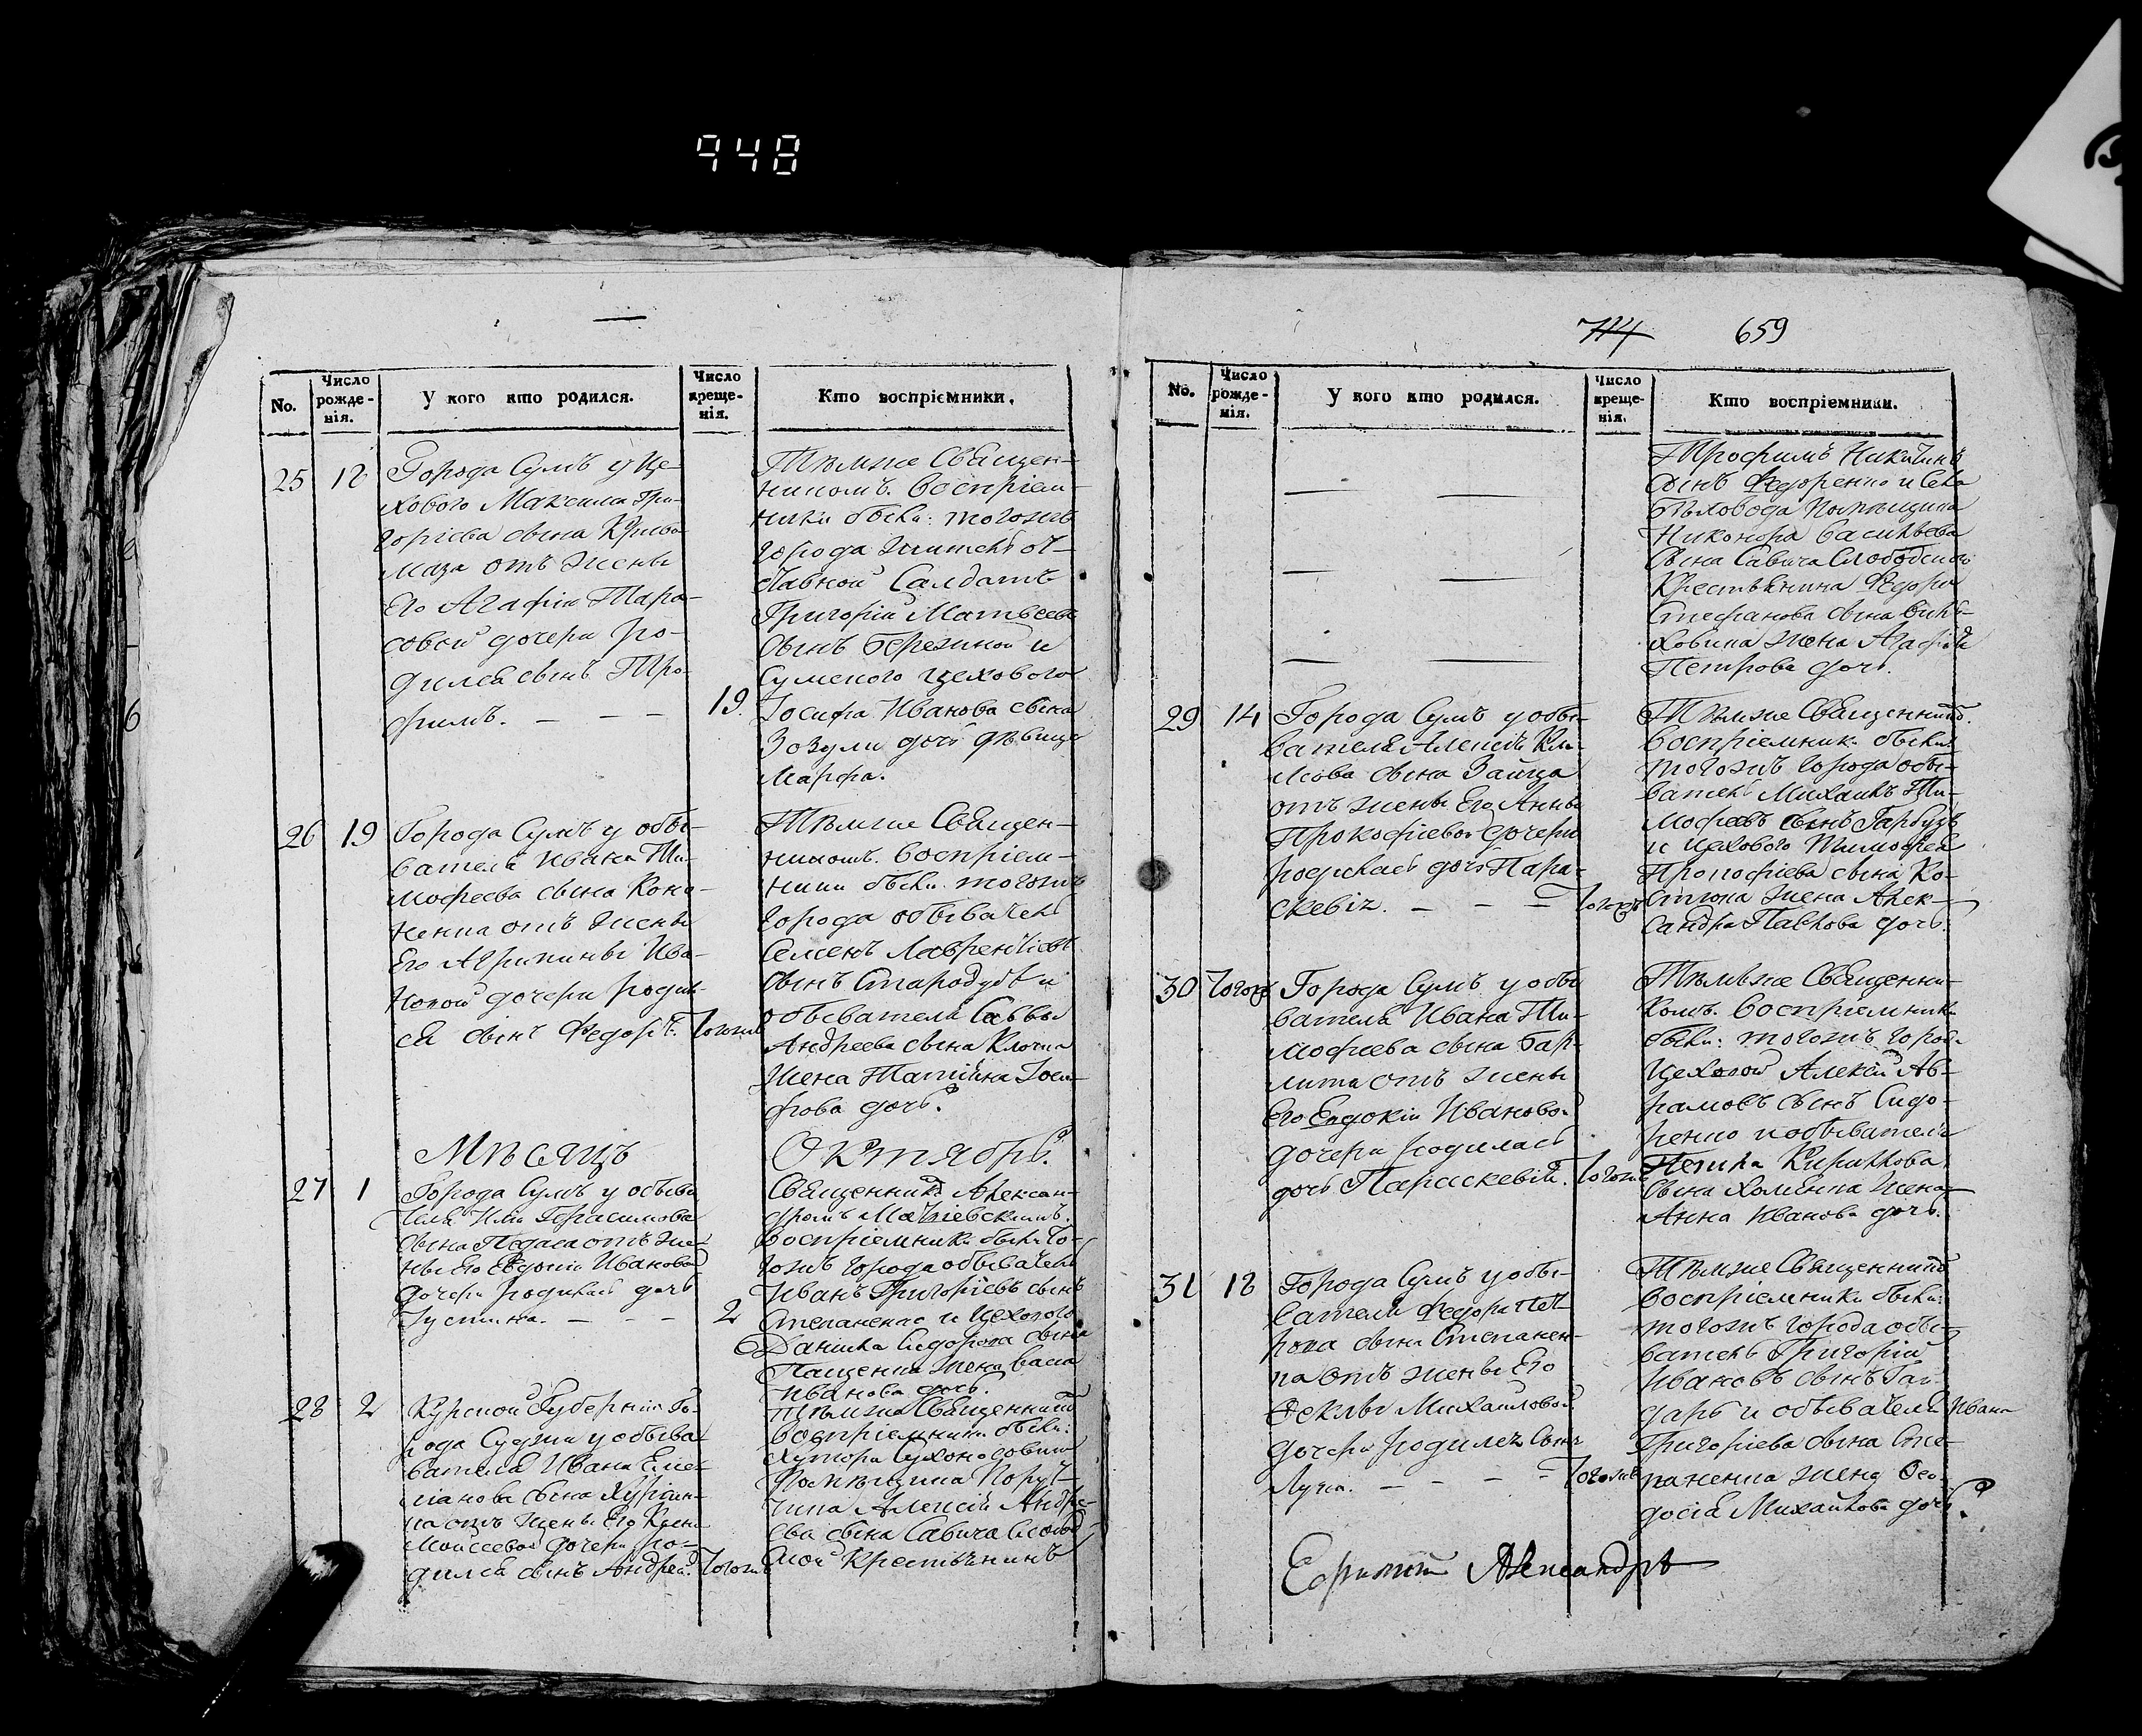 948
No.
Число рожде-нія.
У кого кто родился.
Число креще-нія.
Кто воспріемники.
25
12
Города Сумъ у це-
хового Максима Гри-
горіева сына Криво-
маза отъ жены
Его Агафіи Тара-
совой дочери ро-
дился сынъ Тро-
фимъ. — — —
19.
Тѣмже Священ-
никомъ. воспріем-
ники были: тогожъ
города житель от-
ставной Салдатъ
Григорій Матвеевъ
сынъ Березной и
Сумского цехового
Іосифа Иванова сына
Зозули дочь дѣвица
Марфа.
26
19
Города Сумъ у обы-
вателя Ивана Ти-
мофеева сына Коно-
ненка отъ жены
Его Агрипины Ива-
новой дочери родил-
ся сынъ Федоръ.
Тогожъ
Тѣмже Священ-
никомъ. воспріем-
ники были: тогожъ
города обыватель
Семенъ Лаврентіевъ
сынъ Стародубъ и
обывателя Саввы
Андреева сына Клочка
жена Татіяна Іоси-
фова дочь.
Мѣсяцъ
Октябрь.
27
1
Города Сумъ у обыва
теля Ильи Герасимова
сына Педаса отъ же-
ны Его Евдокіи Ивановой
дочери родилась дочь
Іустина. — — —
2
Священникомъ Алексан-
дромъ
воспріемники были: то-
гожъ города обыватель
Иванъ Григоріевъ сынъ
Степаненко и цехового
Данила Сидорова сына
Пащенка жена
Иванова дочь.
28
2
Курской Губерніи Го-
рода Суджи у обыва
вателя Ивана
сына
на отъ жены Его
Моисеевой дочери ро-
дился сынъ Андрей.
Тогожъ
Тѣмже Священникомъ
воспріемники были:
хутора Сухоносовки
Помѣщика Поруч-
чика Алексѣя Андре-
ева сына Савича
крестьянинъ
714
659
No.
Число рожде-нія.
У кого кто родился.
Число креще-нія.
Кто воспріемники.
Трофимъ Никитинъ
сынъ Федоренко и села
Быховода Помѣщика
Никонора Васильева
сына Савича Слободской
Крестьянина Федора
Стефанова сына
жена Агафія
Петрова дочь.
29
14
Города Сумъ у обы-
вателя Алексѣя Кли-
мова сына Зайца
отъ жены Его Анны
Прокофіевой дочери
родилась дочь Пара-
скевія. — — —
Тогожъ
Тѣмже Священникомъ.
воспріемники были:
тогожъ города обы-
ватель Михаилъ Ти-
мофеевъ сынъ Гарбузъ
и цехового Тимофея
Прокофіева сына Ко-
жена Алек-
сандра Павлова дочь.
30
Тогожъ
Города Сумъ у обы
вателя Ивана Ти-
мофеева сына
отъ жены
Его Евдокіи Ивановой
дочери родилась
дочь Параскевія.
Тогожъ
Тѣмже Священни-
комъ. воспріемники
были: тогожъ города
цеховой Алексѣй Ав-
рамовъ сынъ Сидо-
ренко и обывателя
Кирилова
сына Хоменка жена
Анна Иванова дочь.
31
18
Города Сумъ у обы-
вателя Федора Пет-
рова сына Степанен-
ка отъ жены Его
Феклы Михайловой
дочери родился сынъ
Лука. — — —
Тогожъ
Тѣмже Священникомъ
воспріемники были:
тогожъ города обы-
ватель Григорій
Ивановъ сынъ
и обывателя Ивана
Григоріева сына Сте-
паненка жена Фео-
досія Михайлова дочь.